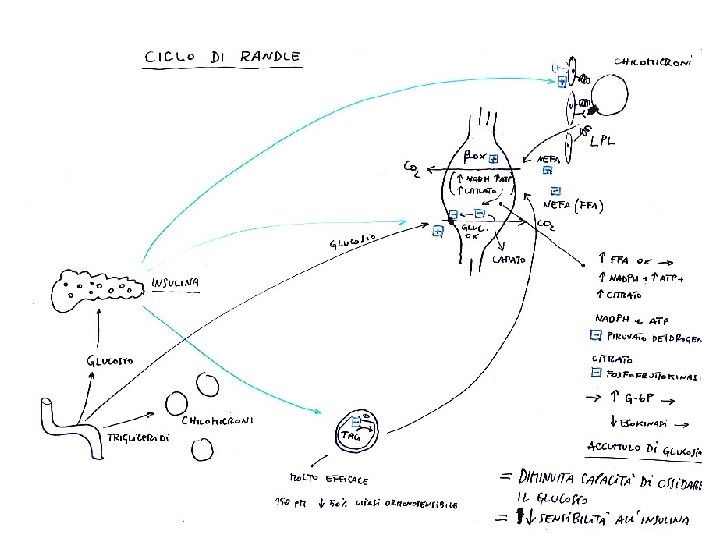 CICLO DI RANDLE
CHILOMICRONI
LPL
(+)
+
βOX +
NEFA
CO2
↑ NADH ↑ATP
↑ CITRATO
NEFA (FFA)
GLUC.
OX
CO2
GLUCOSIO
LATTATO
INSULINA
GLUCOSIO
TRIGLICERIDI
CHILOMICRONI
TAG
MOLTO EFFICACE
↓ 50% LIPASI ORMONOSENSIBILE
↑ FFA OX →
↑ NADPH + ↑ ATP +
↑ CITRATO
NADPH e ATP
- PIRUVATO DEIDROGEN
CITRATO
- FOSFOFRUTTOKINASI
→ ↑ G-6P →
↓ ESOKINASI →
ACCUMULO DI GLUCOSIO
= DIMINUITA CAPACITA' DI OSSIDARE
IL GLUCOSIO
= ↓ SENSIBILITÀ ALL'INSULINA